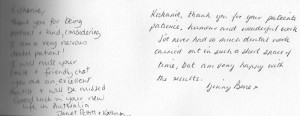 Kishanie,
Thank you for being
patient & kind, considering
I am a very nervous
dental patient!
I will miss your
smile & friendly chat
you are an excellent
dentist & will be missed
Good luck in your new
life in Australia
Janet Pettitt &
Kishanie, thank you for your patients
patience, humour and wonderful work
I've never had so much dental work
carried out in such a short space of
time, but am very happy with
the results.
Jenny